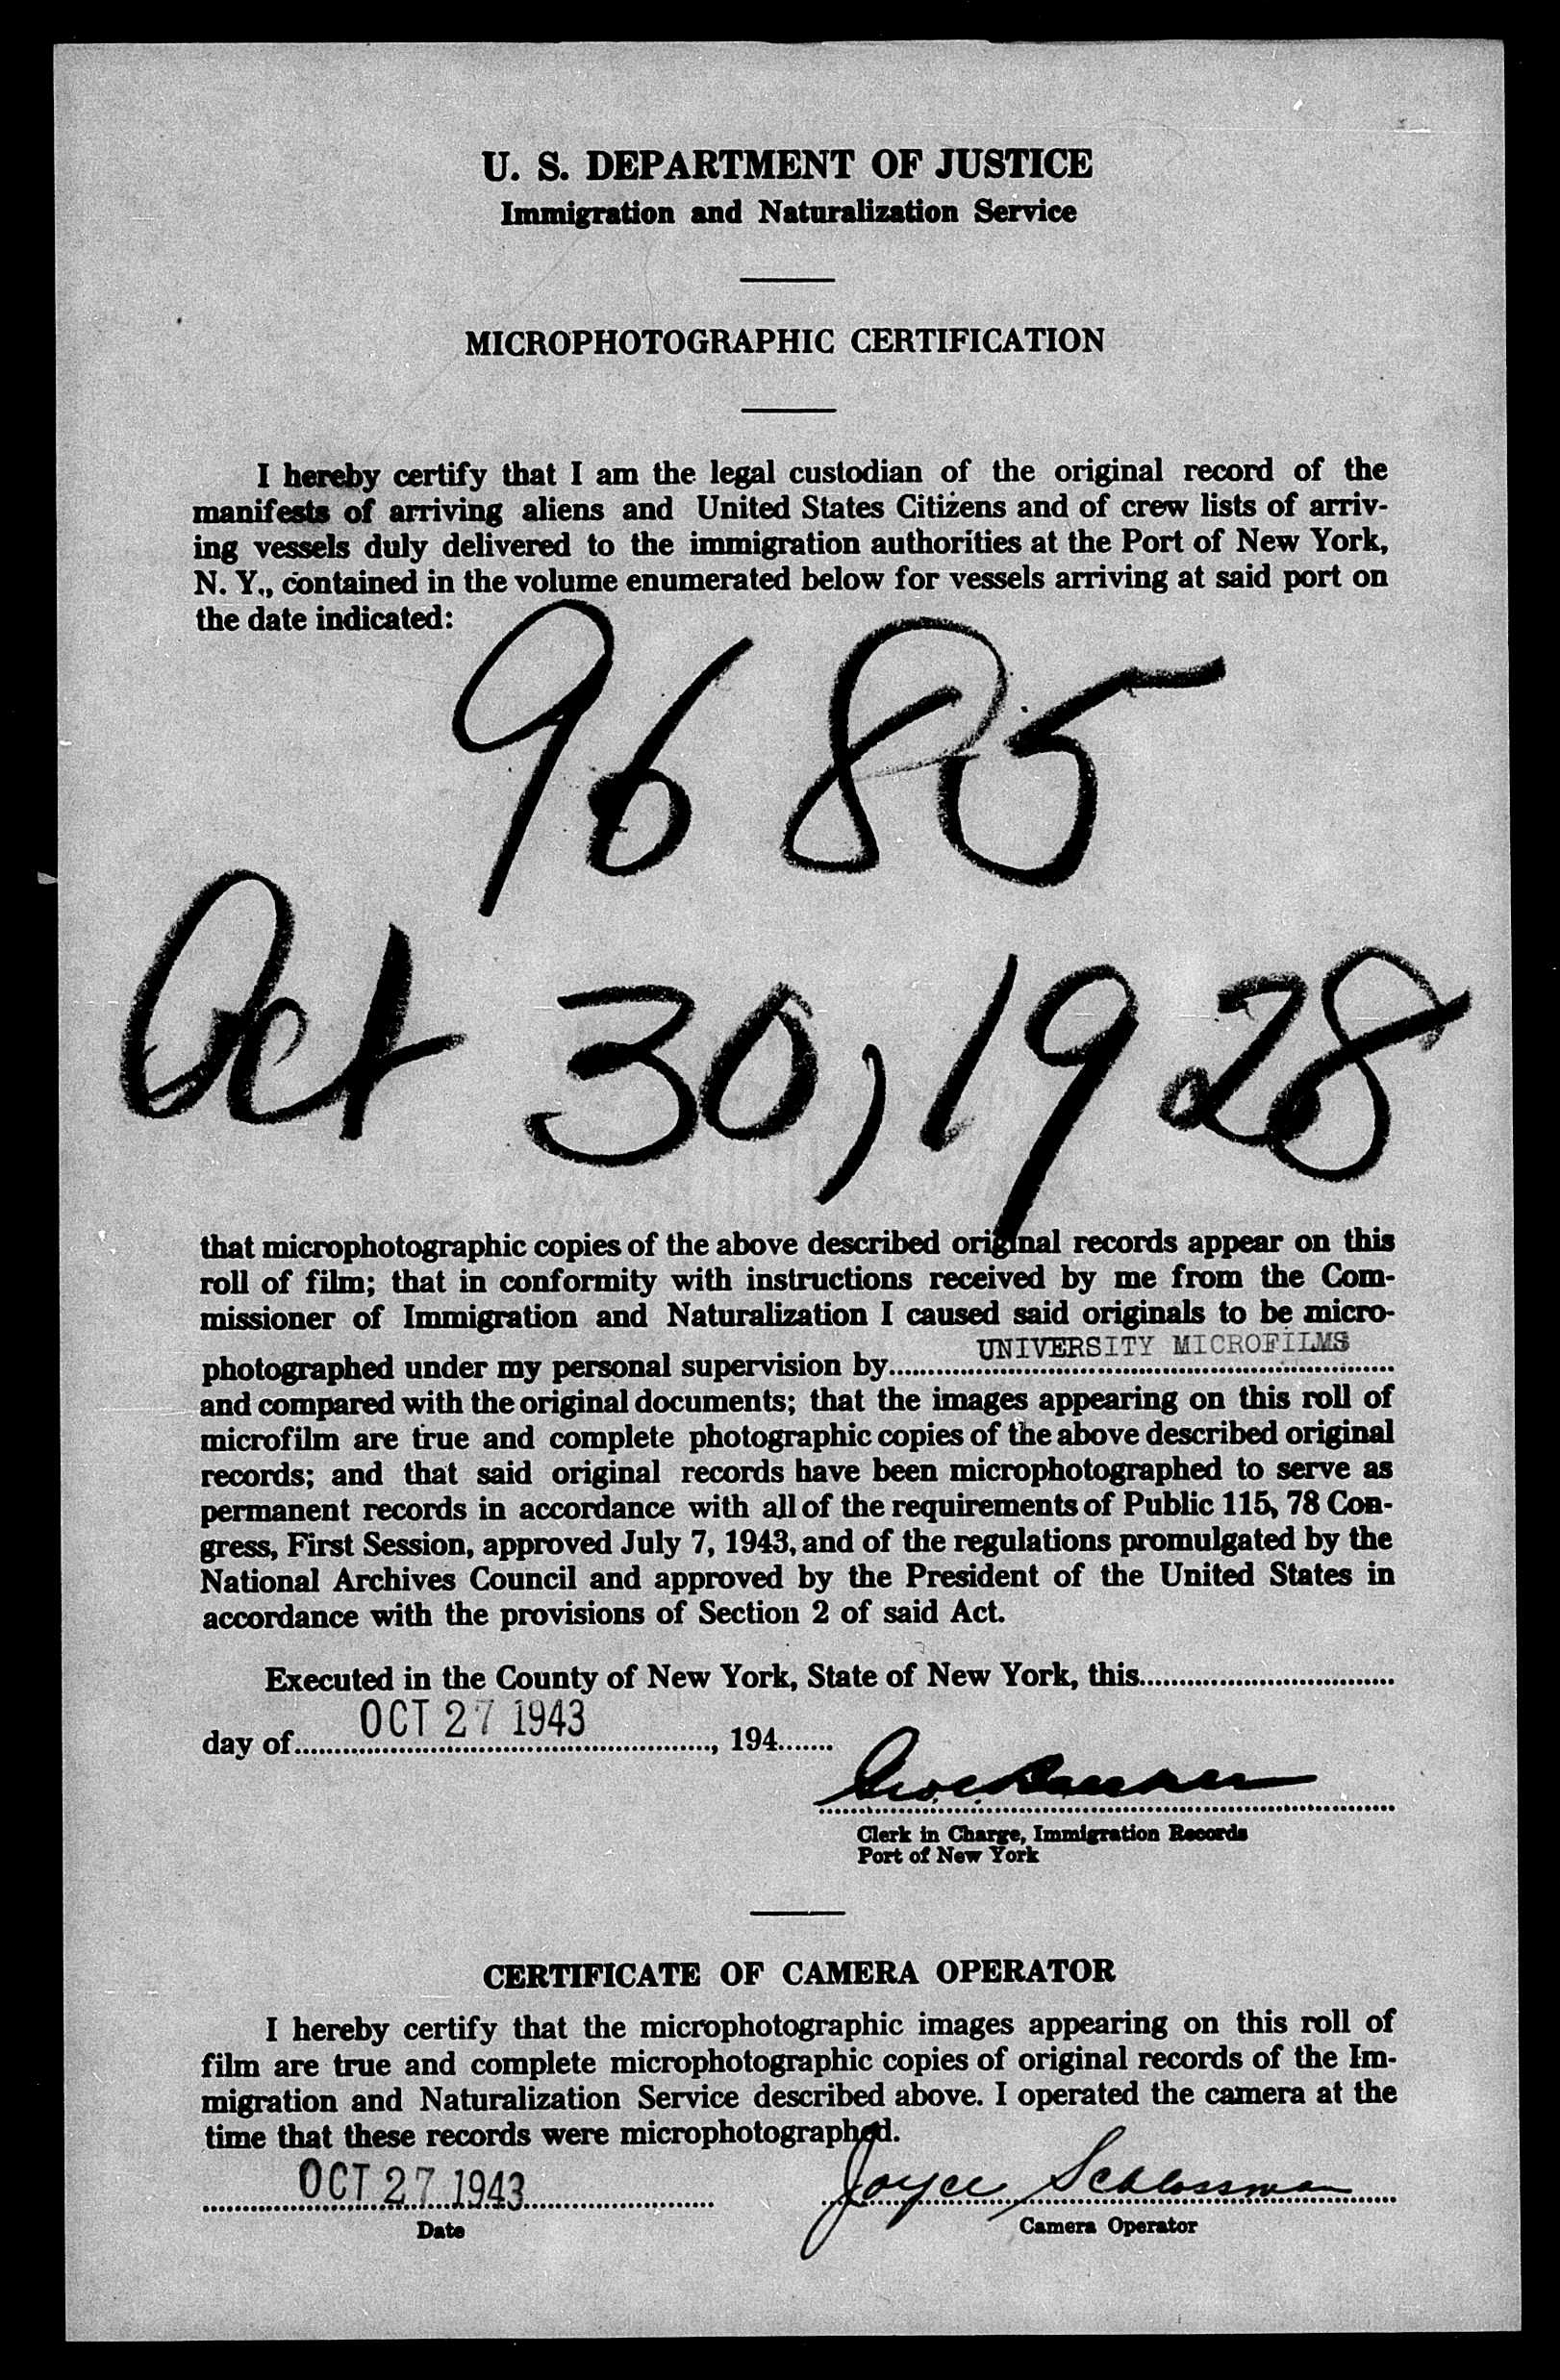 U. S. DEPARTMENT OF JUSTICE
Immigration and Naturalization Service
MICROPHOTOGRAPHIC CERTIFICATION
I hereby certify that I am the legal custodian of the original record of the
manifests of arriving aliens and United States Citizens and of crew lists of arriv-
ing vessels duly delivered to the immigration authorities at the Port of New York,
N. Y., contained in the volume enumerated below for vessels arriving at said port on
the date indicated:
9685
Oct 30, 1928
that microphotographic copies of the above described original records appear on this
roll of film; that in conformity with instructions received by me from the Com-
missioner of Immigration and Naturalization I caused said originals to be micro-
photographed under my personal supervision by UNIVERSITY MICROFILMS
and compared with the original documents; that the images appearing on this roll of
microfilm are true and complete photographic copies of the above described original
records; and that said original records have been microphotographed to serve as
permanent records in accordance with all of the requirements of Public 115, 78 Con-
gress, First Session, approved July 7, 1943, and of the regulations promulgated by the
National Archives Council and approved by the President of the United States in
accordance with the provisions of Section 2 of said Act.
Executed in the County of New York, State of New York, this
day of OCT 27 1943, 194
Clerk in Charge, Immigration Records
Port of New York
CERTIFICATE OF CAMERA OPERATOR
I hereby certify that the microphotographic images appearing on this roll of
film are true and complete microphotographic copies of original records of the Im-
migration and Naturalization Service described above. I operated the camera at the
time that these records were microphotographed.
OCT 27 1943 Joyce Schlossman
Date Camera Operator